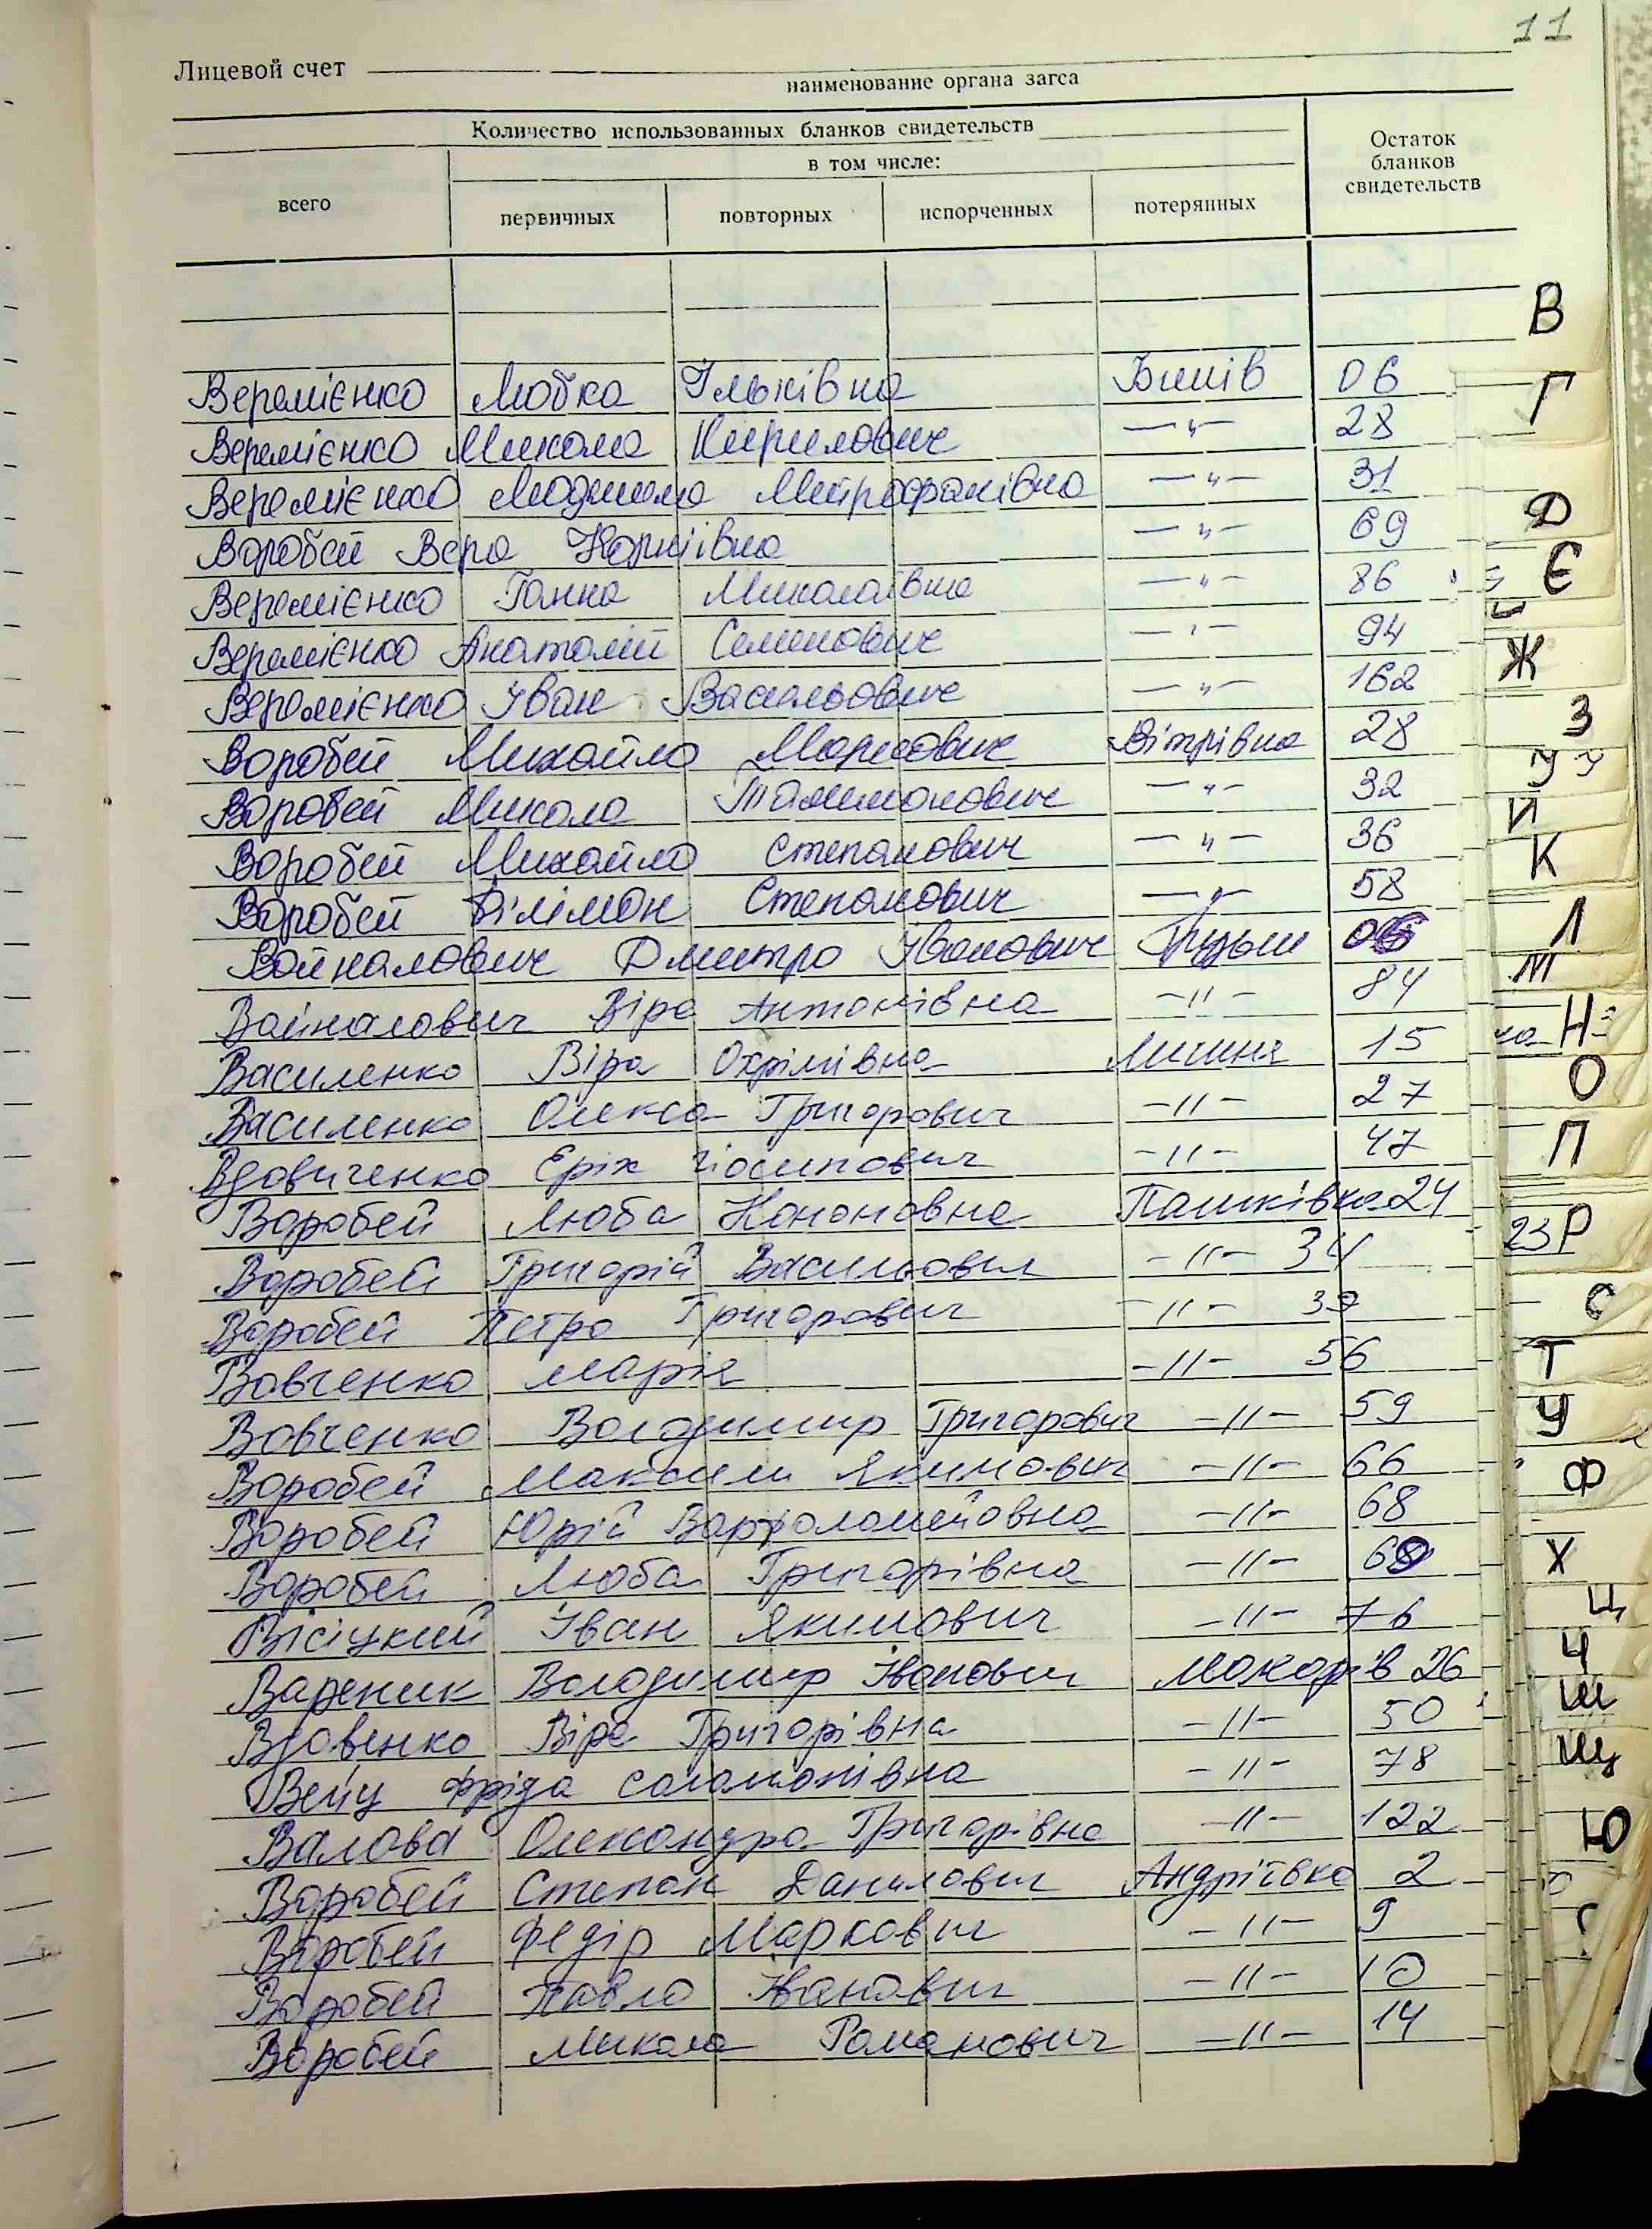 11
Лицевой счет
наименование органа загса
Количество использованных бланков свидетельств
Остаток бланков свидетельств
в том числе:
всего
первичных повторных испорченных потерянных
Веремієнко Любка Ільківна Бишів 06
Веремієнко Микола Кирилович —„— 28
Веремієнко Людмила Митрофанівна —„— 31
Воробей Вера Корніївна —„— 69
Веремієнко Ганна Миколаївна —„— 86
Веремієнко Анатолій Семенович —„— 94
Веремієнко Іван Васильович —„— 162
Воробей Михайло Маркович Вітрівка 28
Воробей Микола Талимонович —„— 32
Воробей Михайло Степанович —„— 36
Воробей Філімон Степанович —„— 58
Войналович Дмитро Іванович 06
Войналович Віра Антонівна —„— 84
Василенко Віра Охрімівна Личиня 15
Василенко Олекса Григорович —„— 27
Вдовиченко Еріх Іосипович —„— 47
Воробей Люба Кононовна Пашківка 24
Воробей Григорій Васильович —„— 34
Воробей Петро Григорович —„— 39
Вовченко Марія —„— 56
Вовченко Володимир Григорович —„— 59
Воробей Максим Якимович —„— 66
Воробей Юрій Варфоломейовна —„— 68
Воробей Люба Григорівна —„— 69
Вісіцкий Іван Якимович —„— 76
Вареник Володимир Іванович Макарів 26
Вдовенко Віра Григорівна —„— 50
Вейц Фріда Соломонівна —„— 78
Валова Олександра Григорівна —„— 122
Воробей Степан Данилович Андріївка 2
Воробей Федір Маркович —„— 9
Воробей Павло Іванович —„— 10
Воробей Микола Романович —„— 14
В
Г
Д
Є
Ж
З
У
И
К
Л
М
Н
О
П
23 Р
С
Т
У
Ф
Х
Ц
Ч
Ш
Щ
Ю